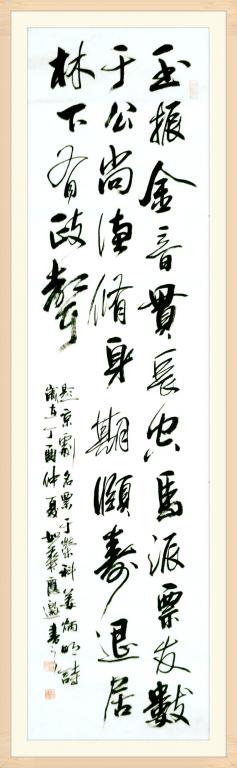 玉振金音貫長空馬派票友數
于公尚德脩身期頤壽退居
林下有政聲
題京劇名票于榮科姜炳明詩
歲在丁酉仲夏應邀書